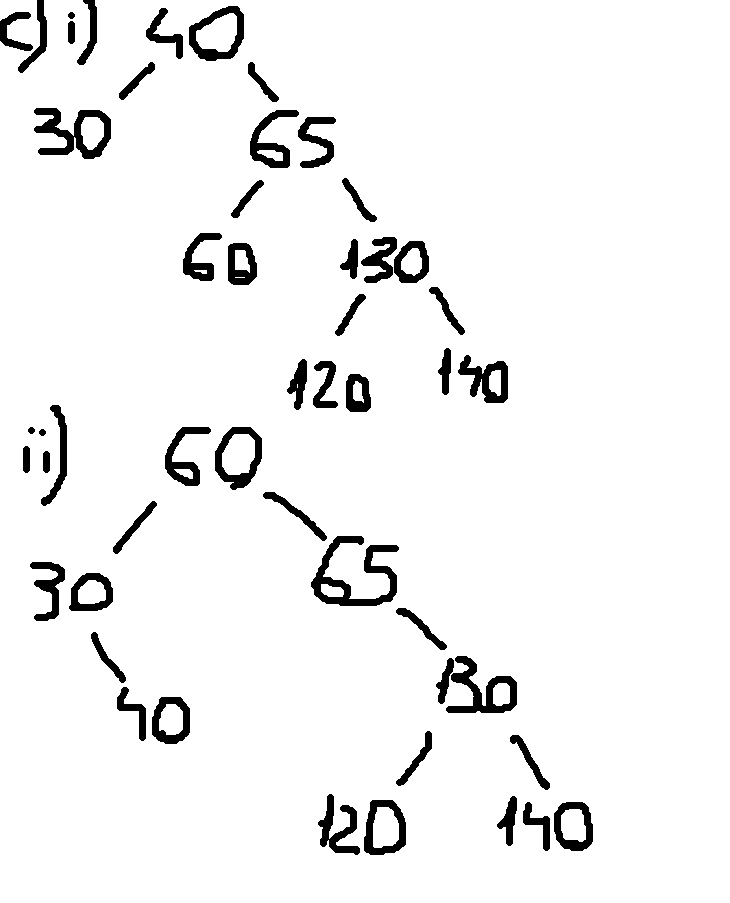 c) i) 40
30 65
60 130
120 140
ii) 60
30 65
40 130
120 140